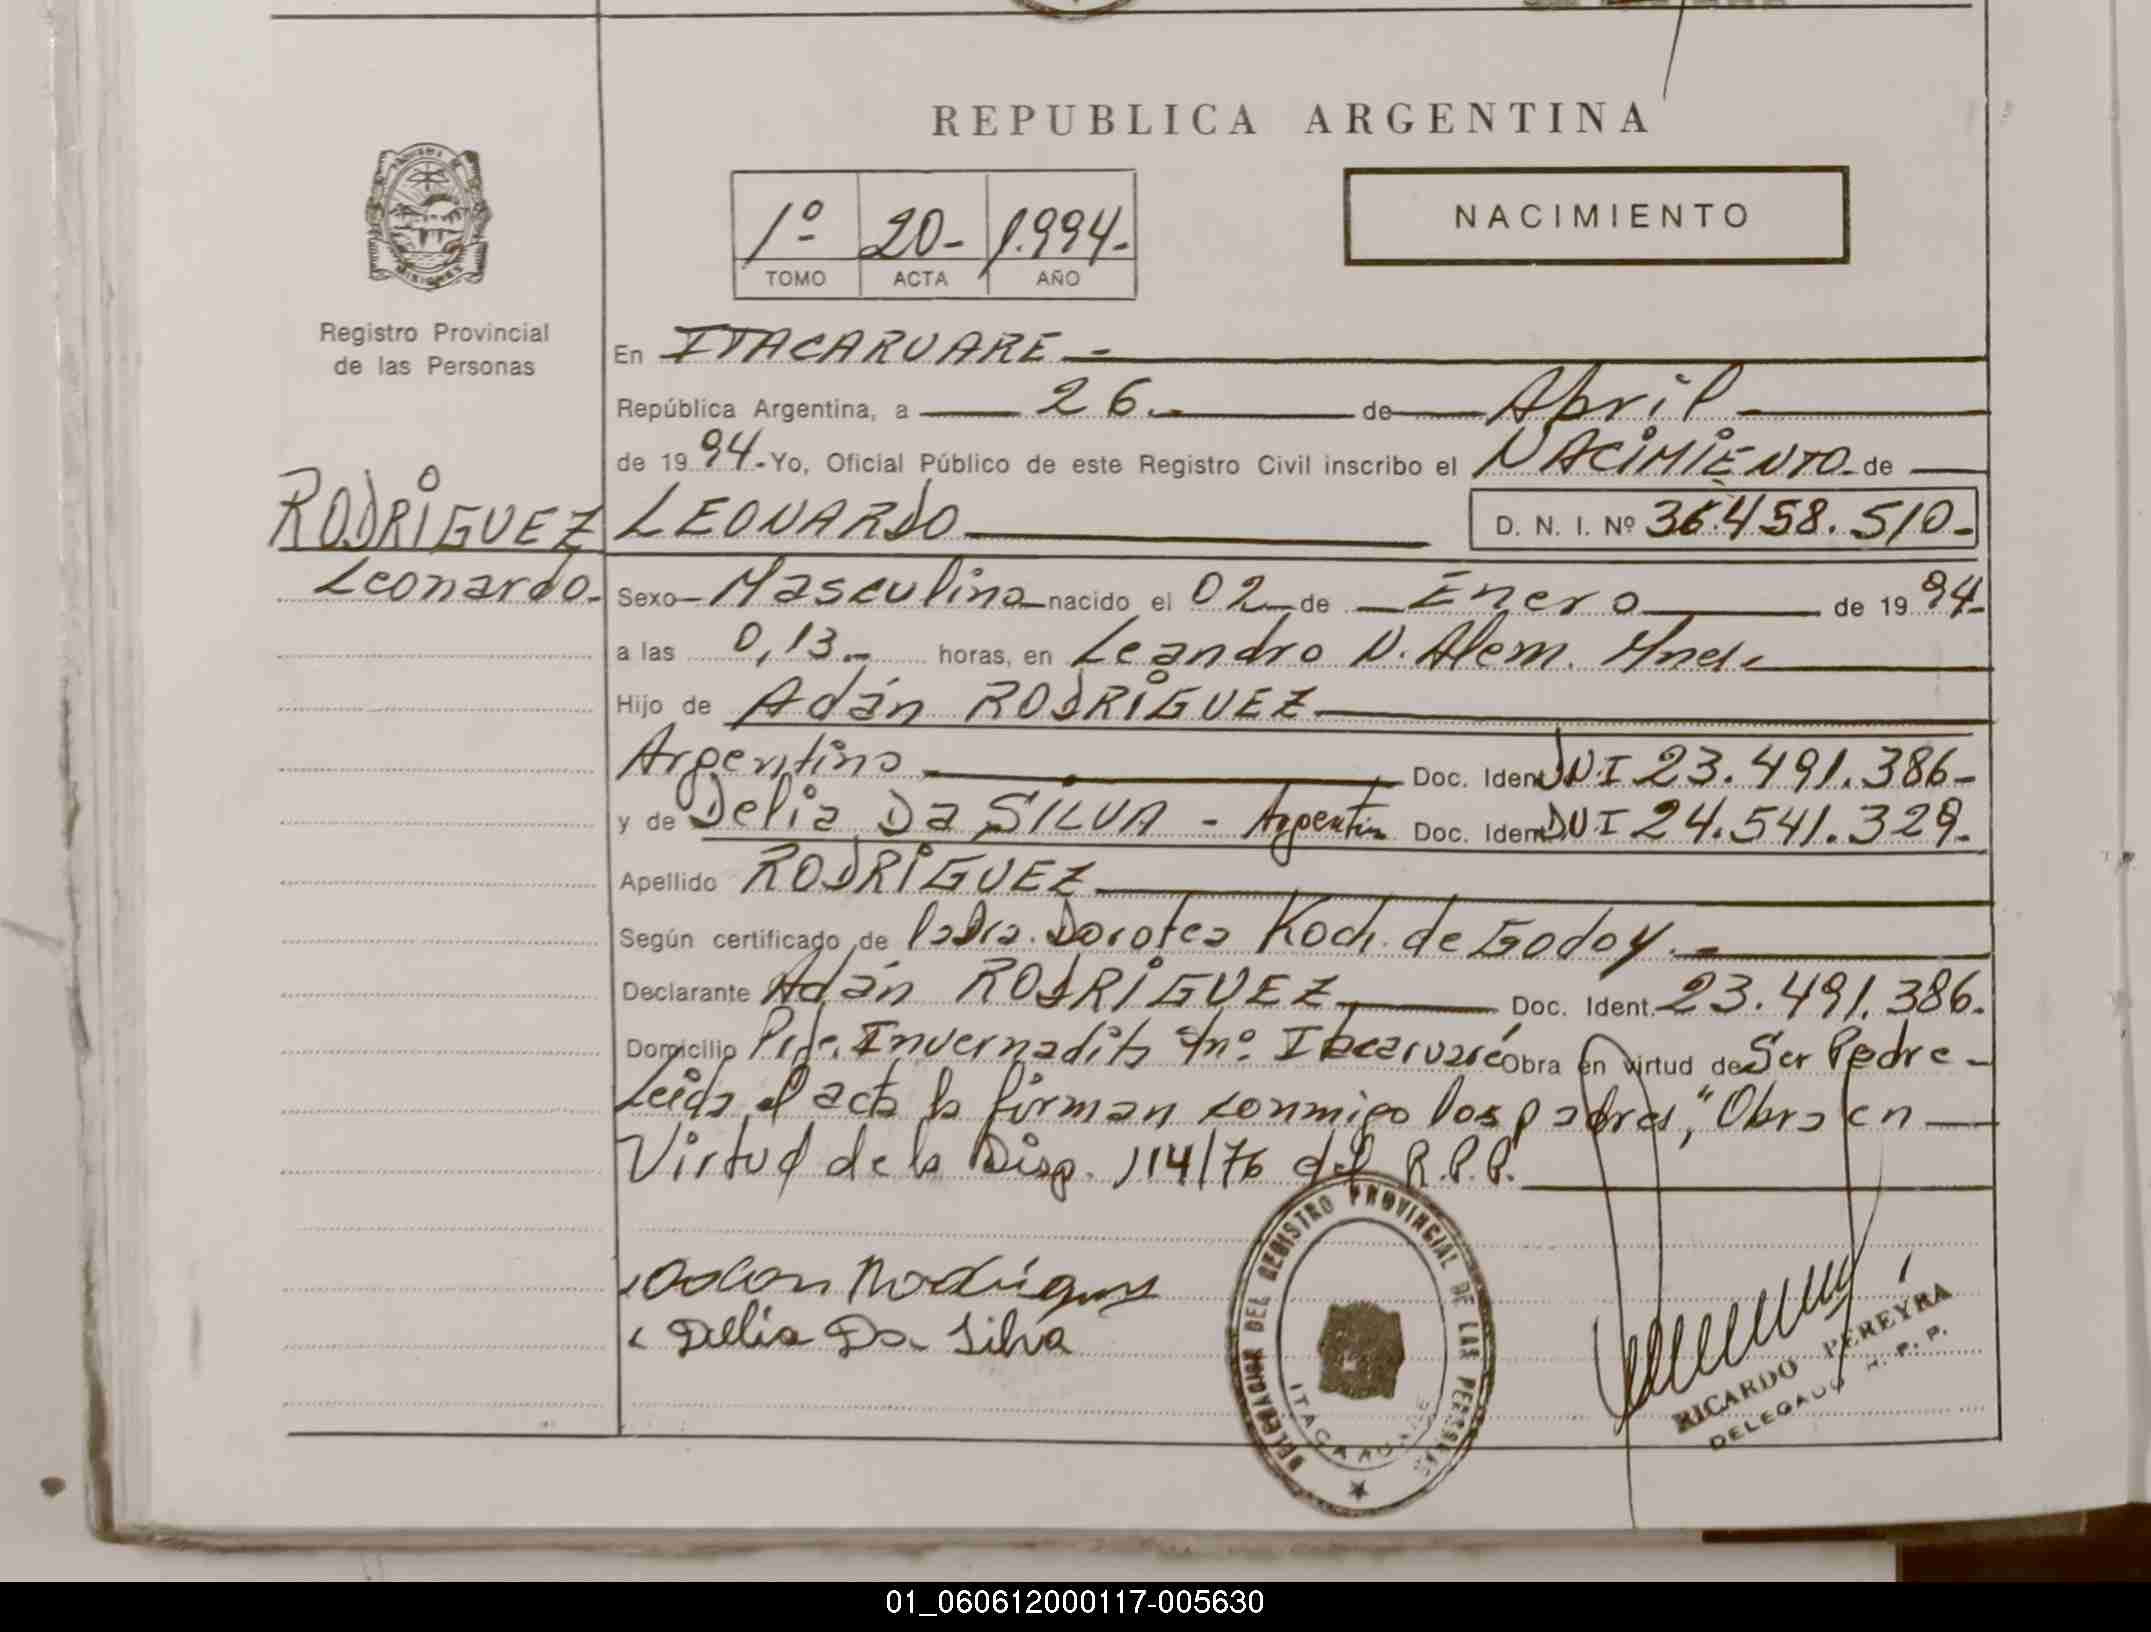 REPUBLICA ARGENTINA
NACIMIENTO
1º 20- 1.994-
TOMO ACTA AÑO
Registro Provincial
de las Personas
RODRIGUEZ
Leonardo.-
En ITACARUARE -
República Argentina, a 26.- de Abril
de 1994.- Yo, Oficial Público de este Registro Civil inscribo el NACIMIENTO de
LEONARDO D. N. I. Nº 36.458.510-
Sexo Masculino nacido el 02 de Enero de 1994-
a las 0,13.- horas, en Leandro N. Alem.
Hijo de Adán RODRIGUEZ
Argentino Doc. Ident. DNI 23.491.386-
y de Delia Da SILVA - Argentin Doc. Ident. DNI 24.541.329.
Apellido RODRIGUEZ
Según certificado de la Dra. Dorotea Koch. de Godoy.-
Declarante Adán RODRIGUEZ Doc. Ident. 23.491.386.
Domicilio Invernadita Itacaruaré Obra en virtud de Ser Padre-
Leida el acta la firman conmigo los padres, "Obra en
Virtud de la Disp. 114/76 del R.P.P.
Adan Rodriguez
Dellia Da Silva
DELEGACION DEL REGISTRO PROVINCIAL DE LAS PERSONAS
ITACARUARE
RICARDO PEREYRA
DELEGADO R. P. P.
01_060612000117-005630